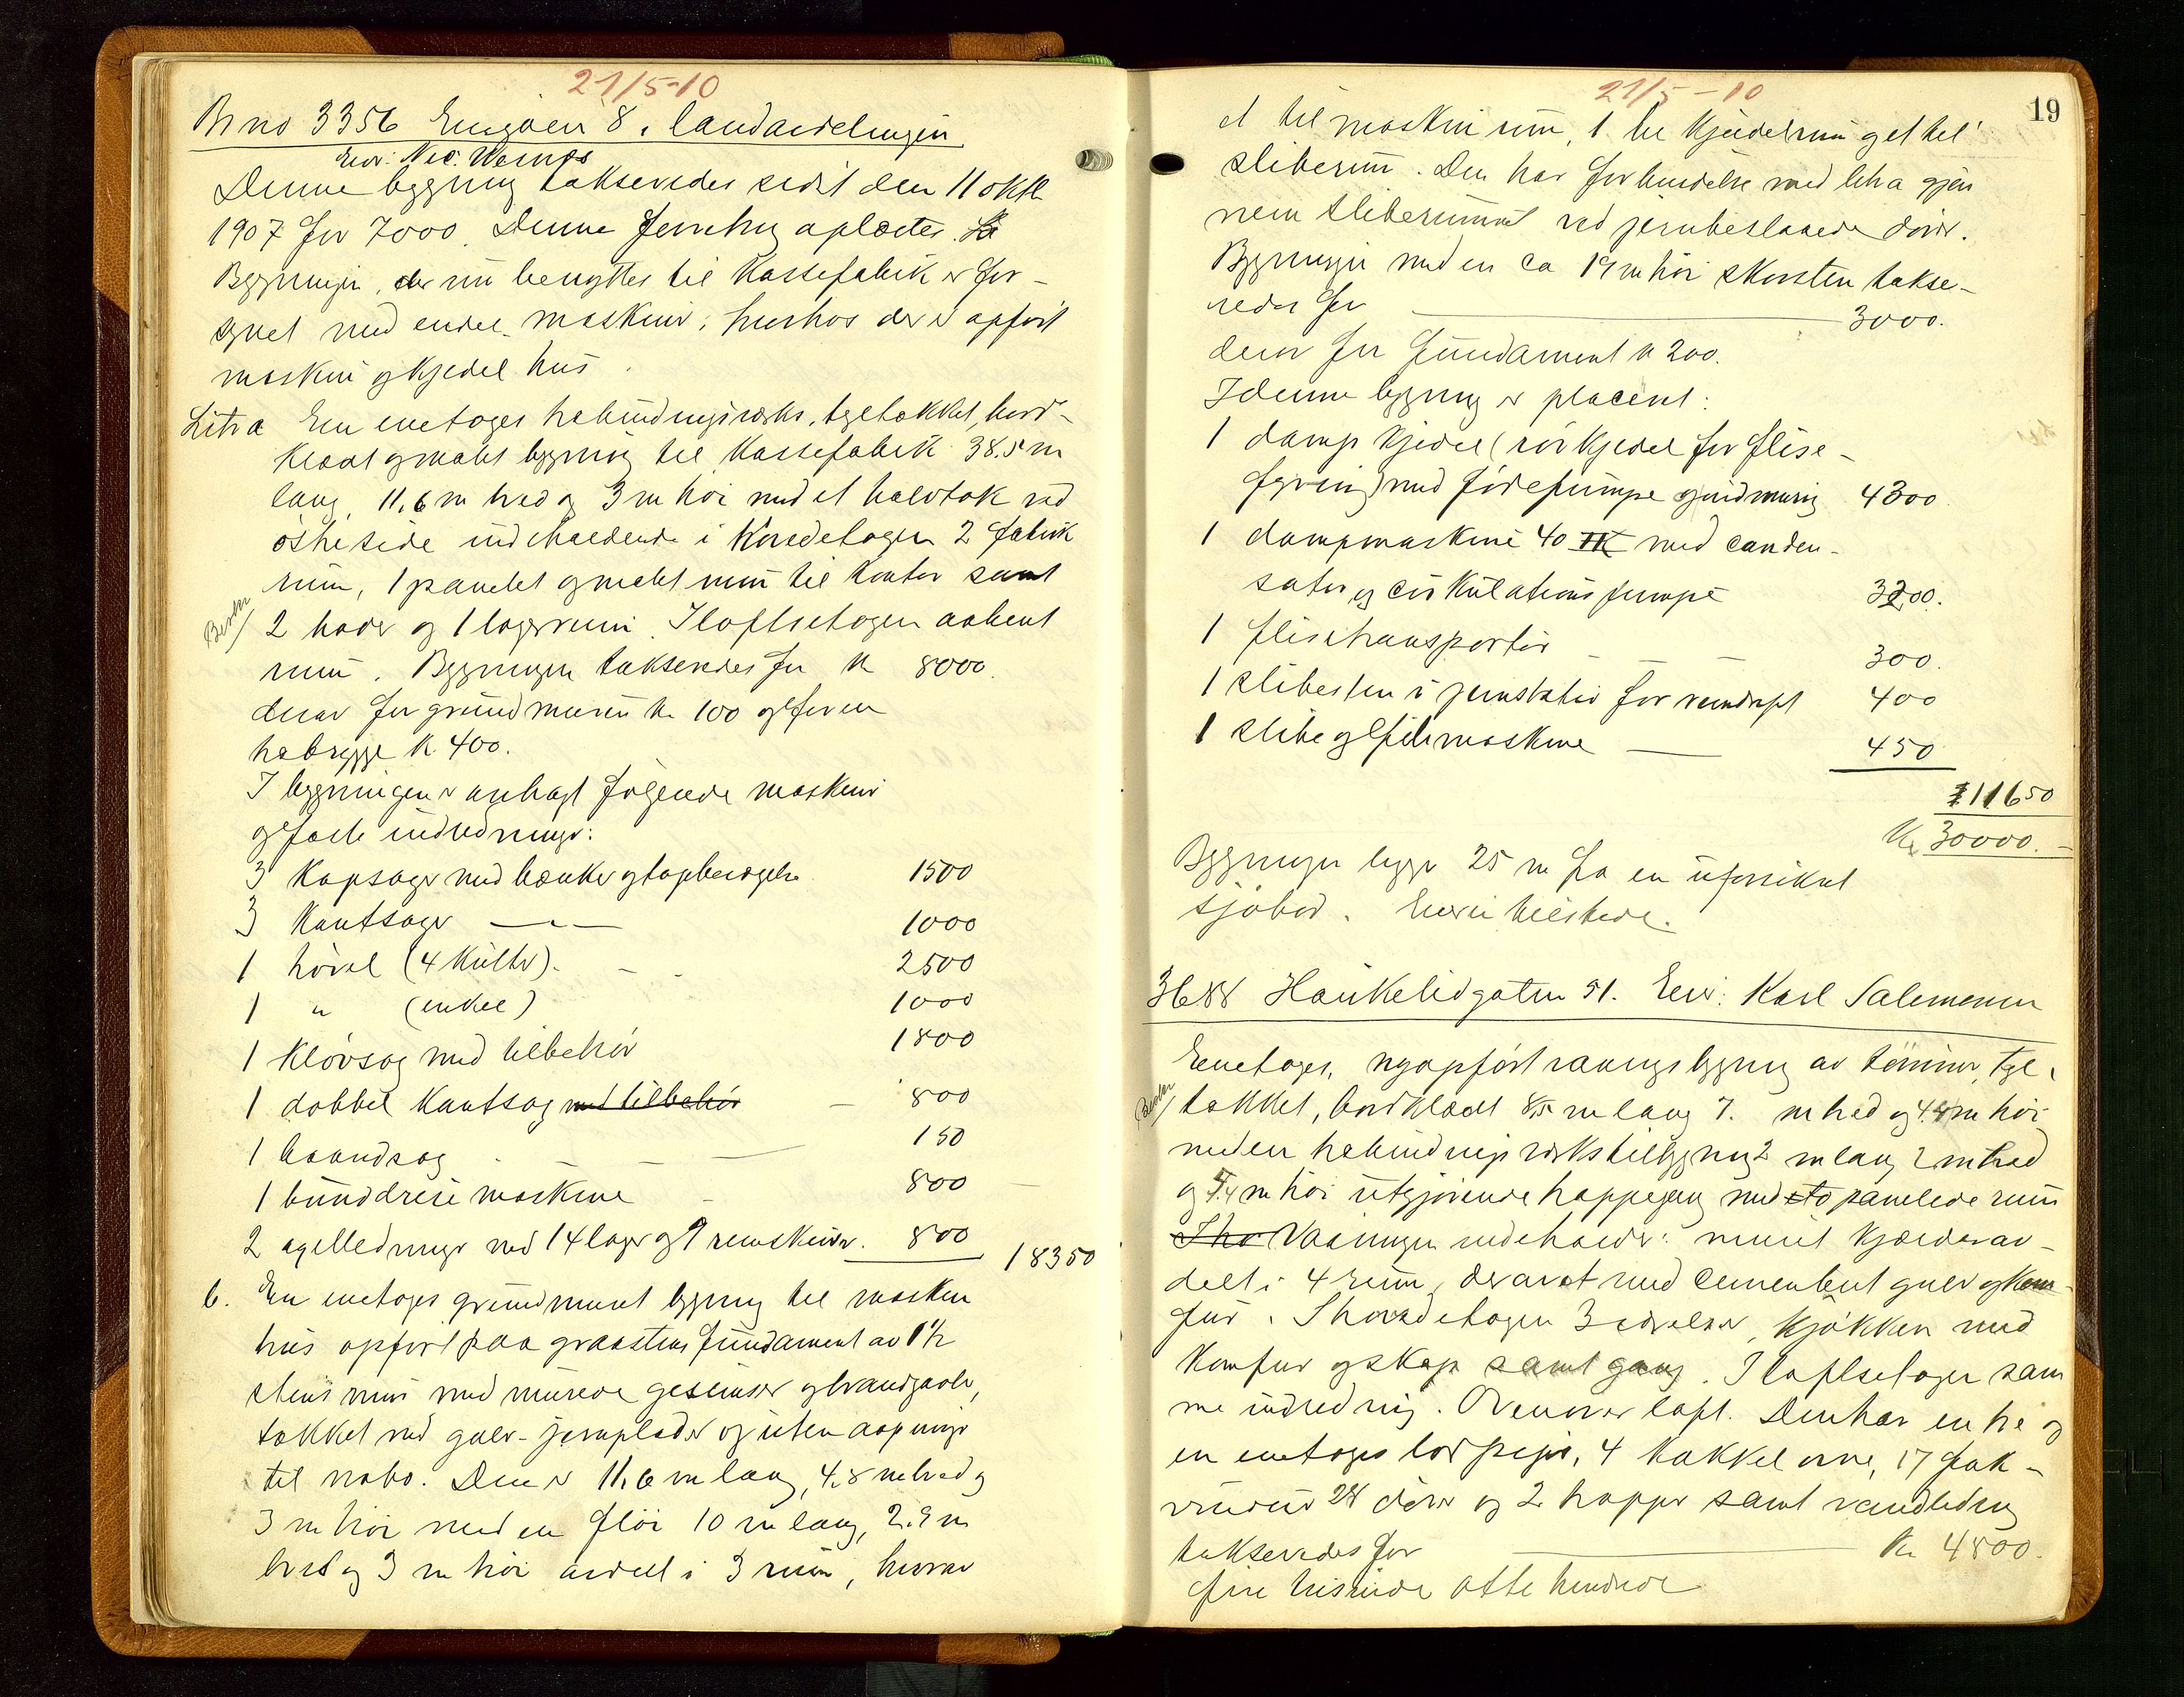 21/5-10
Br no 3356 Engøen 8, landavdelingen
Eier: Nic. Wemes
Denne bygning takseredes sidst den 11 okt
1907 for 7000. Denne forretning oplæstes.
Bygningen, der nu benyttes til kassefabrik er for-
synet med endel maskiner, hvorhos der er opført
maskin og kjedel hus.
Litra En enetages trebindingsverks, tegltakket, bord-
klædt og malet bygning til kassefabrik 38.5 m
lang, 11,6 m bred og 3 m høi med et halvtak ved
østre side indeholdende i hovedetagen 2 fabrik
rum, 1 panelet og malet rum til kontor samt
Besku/ 2 boder og 1 lagerrum. I loftsetagen aabent
rum. Bygningen takseredes for kr 8000.
derav for grundmuren kr. 100 og for en
trebrygge kr 400.
I bygningen er anbragt følgende maskiner
og faste indredninger:
3 kapsager med bænker og tagbevægelse 1500
3 kantsager — " — 1000
1 høvel (4 kutter). - - 2500
1 " (enkel) 1000
1 kløvsag med tilbehør 1800
1 dobbel kantsag med tilbehør - 800
1 baandsag - - — 150
1 bunddreie maskine - 800
2 axelledninger med 14 lager og 9 remskiver. 800 18350
b. En enetages grundmuret bygning til maskin
hus opført paa graastens fundament av 1½
stens mur med murede gesimser og brandgavle,
takket med galv-jernplader og uten aapninger
til nabo. Den er 11,6 m lang, 4,8 m bred og
3 m høi med en fløi 10 m lang, 2.9 m
bred og 3 m høi avdelt i 3 rum, hvorav
21/5-10
19
et til maskin rum, 1 til kjedelrum og et til
sliberum. Den har forbindelse med litra a gjen
nem sliberummet ved jernbeslaaede dører.
Bygningen med en ca 19 m høi skorsten takse-
redes for — 3000.
derav for fundament kr 200.
I denne bygning er placeret:
1 damp kjedel (rørkjedel for flise-
fyring) med fødepumpe og indmuring 4300
1 dampmaskine 40 HK med conden-
sator og cirkulations pumpe 3200.
1 flisetransportør - - - 300.
1 slibesten i jernstativ for remdrift 400
1 slibe og filemaskine — 450
11650
Kr 30000.-
Bygningen ligger 25 m fra en uforsikret
sjøbod. Eieren tilstede.
3688 Haukelidgaten 51. Eier: Karl Salomonsen
Enetages, nyopført vaaningsbygning av tømmer, tegl-
Besku/ takket, bordklædt 8,5 m lang 7. m bred og 4.4 m høi
med en trebindingsverkstilbygning 2 m lang 2 m bred
og 5.4 m høi utgjørende trappegang med to panelede rum
I ho Vaaningen indeholder: muret kjælder av-
delt i 4 rum, derav et med cementeret gulv og kom-
fur. I hovedetagen 3 værelser, kjøkken med
komfur og skap samt gang. I loftsetagen sam
me indredning. Ovenover loft. Den har en tre og
en enetages lospejs, 4 kakkelovne, 17 fak-
vinduer 24 dører og 2 trapper samt vandledning
takseredes for — Kr 4800.
fire tusinde otte hundrede